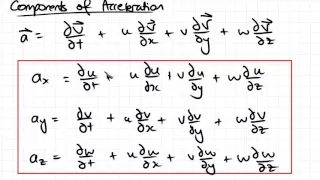 Components of Acceleration
a⃗ = ∂V⃗/∂t + u ∂V⃗/∂x + v ∂V⃗/∂y + w ∂V⃗/∂z
aₓ = ∂u/∂t + u ∂u/∂x + v ∂u/∂y + w ∂u/∂z
a_y = ∂v/∂t + u ∂v/∂x + v ∂v/∂y + w ∂v/∂z
a_z = ∂w/∂t + u ∂u/∂x + v ∂w/∂y + w ∂w/∂z